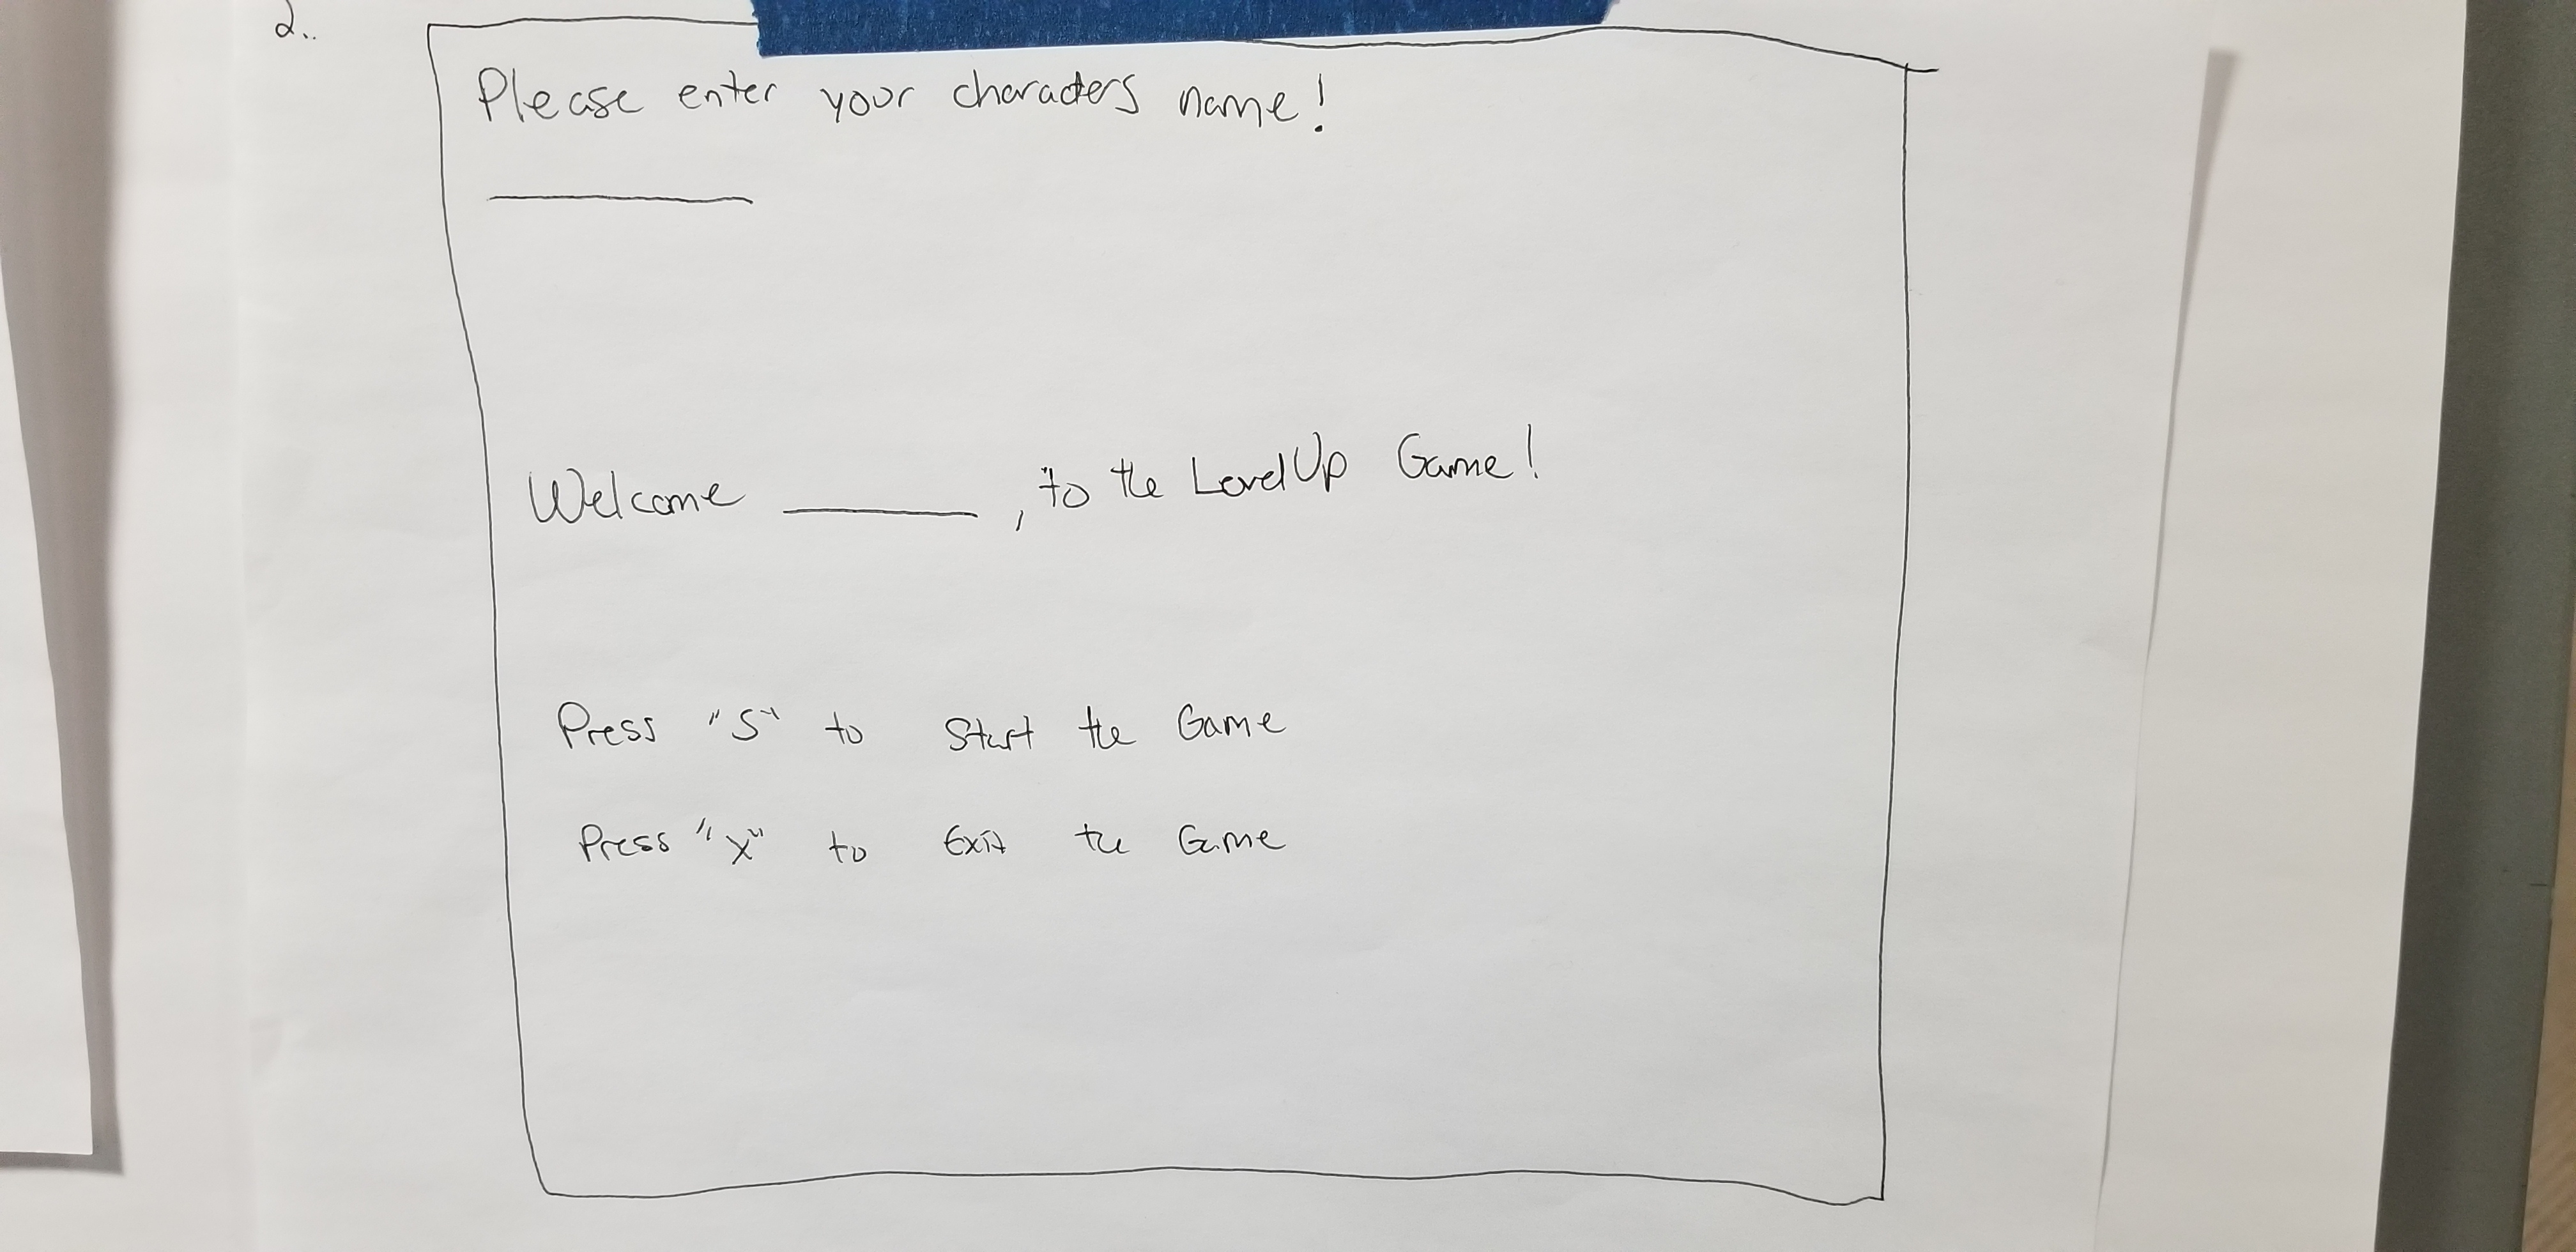 2..
Please enter your characters name!
__________
Welcome ________ , to the LevelUp Game!
Press "S" to Start the Game
Press "X" to Exit the Game